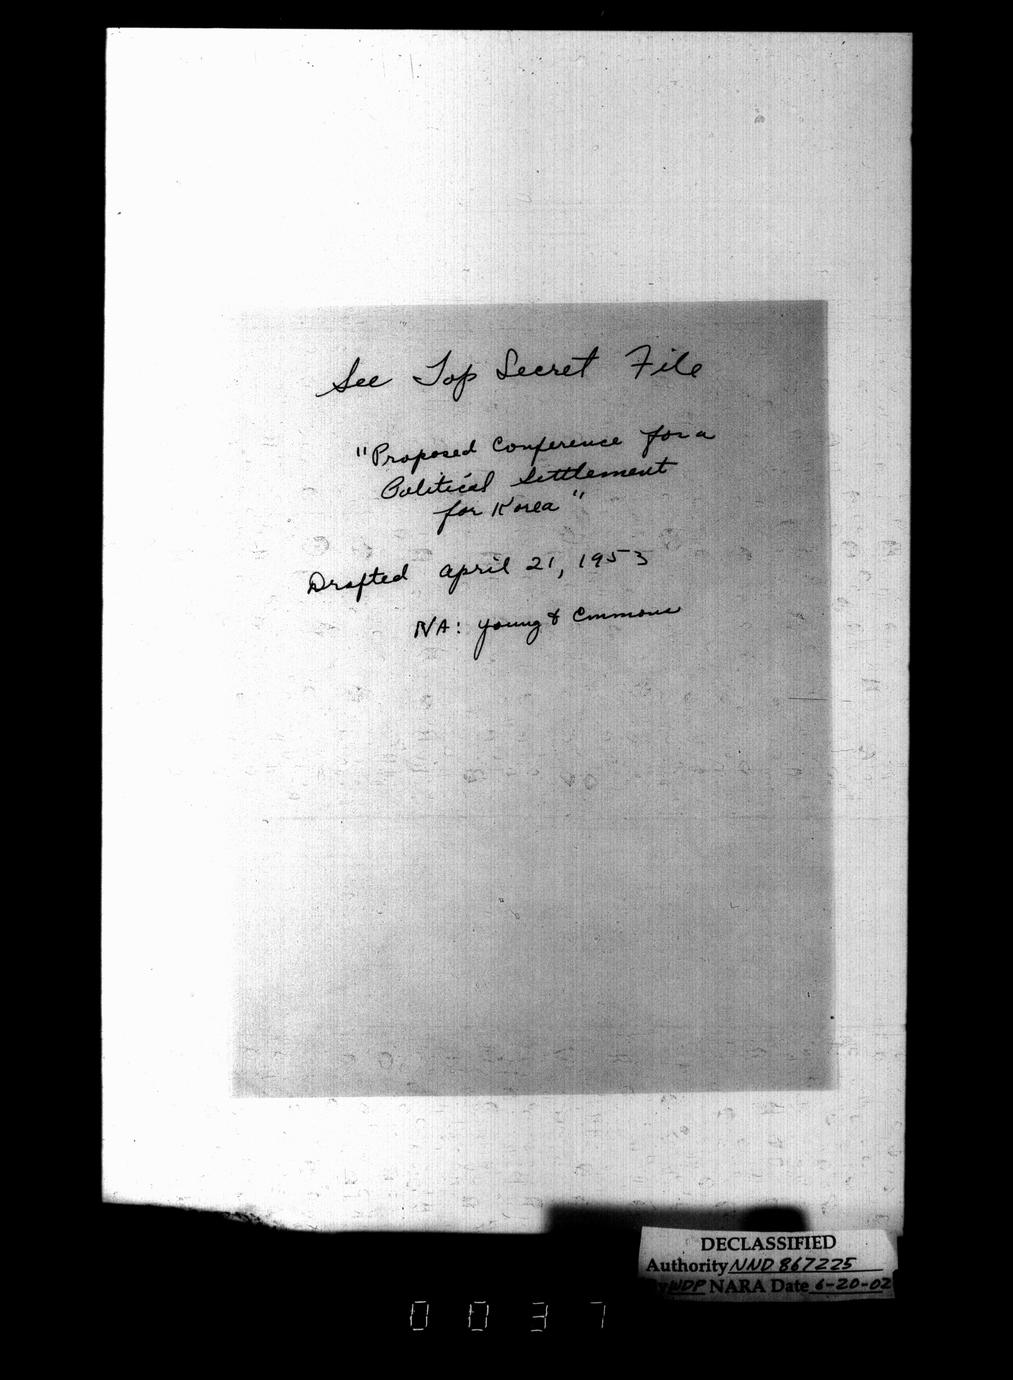 See Top Secret File
"Proposed Conference for a
Political Settlement
for Korea"
Drafted April 21, 1953
NA: Young & Emmons
DECLASSIFIED
Authority NND 867225
By WDP NARA Date 6-20-02
0037